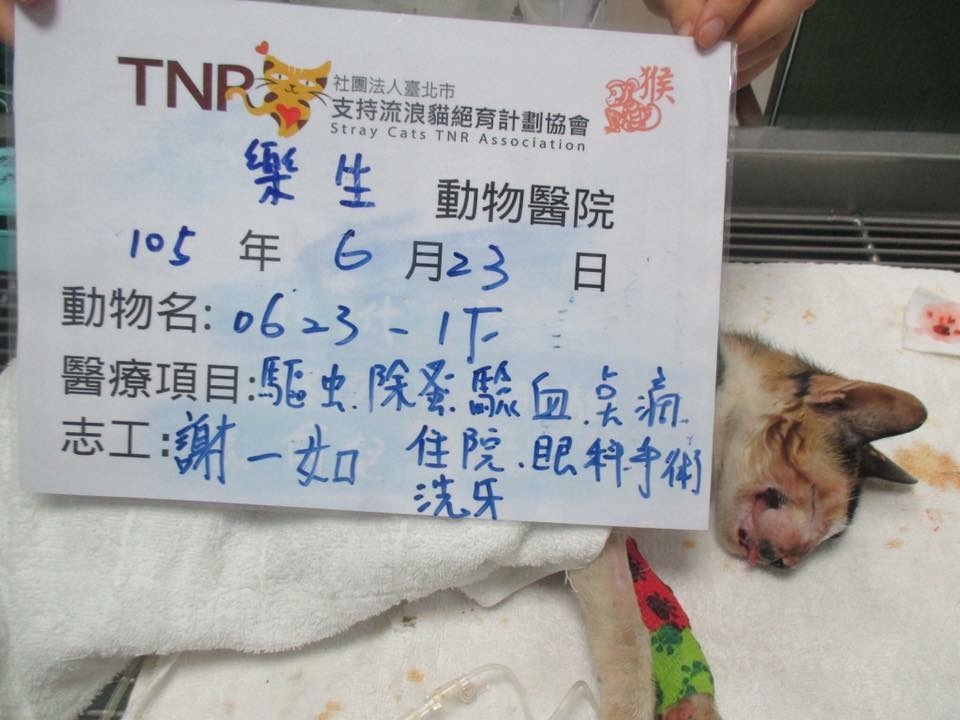 TNR
社團法人臺北市
支持流浪貓絕育計劃協會
Stray Cats TNR Association
猴
樂生 動物醫院
105 年 6 月 23 日
動物名: 0623-1下
醫療項目:驅虫.除蚤.驗血.炎痛.
志工:謝一如 住院.眼科手術
洗牙